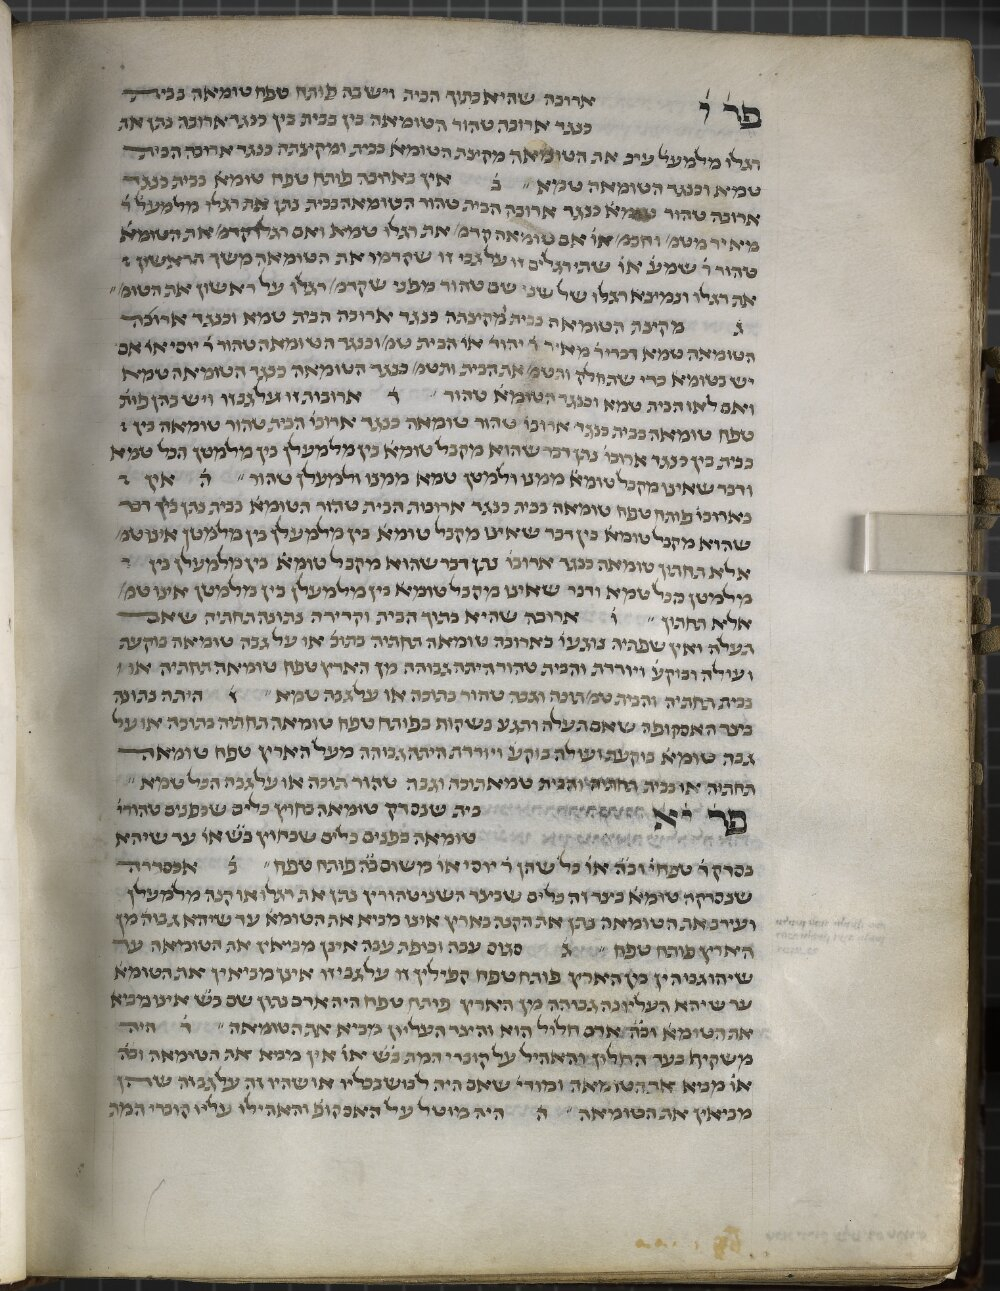 פר׳ י׳ ארובה שהיא בתוך הבית ויש בה פותח טפח טומאה בבית
כנגד ארובה טהור הטומאה בין בבית בין כנגד ארובה נתן את
רגלו מלמעל עירב את הטומאה מקצת הטומא׳ בבית ומקצתה כנגד ארובה הבית
טמא וכנגד הטומאה טמא ״ ב׳ אין בארובה פותח טפח טומא׳ בבית כנגד
ארובה טהור טומא׳ כנגד ארובה הבית טהור הטומאה בבית נתן את רגלו מלמעל׳ ר׳
מאיר מטמ׳ וחכמ׳ או׳ אם טומאה קדמ׳ את רגלו טמא ואם רגלו קדמ׳ את הטומא׳
טהור ר׳ שמע׳ או׳ שתי רגלים זו על גבי זו שקדמו את הטומאה משך הראשון
את רגלו ונמצא רגלו של שני שם טהור מפני שקדמ׳ רגלו של ראשון את הטומ׳
ג׳ מקצת הטומאה בבית מקצתה כנגד ארובה הבית טמא וכנגד ארובה
הטומאה טמא דברי ר׳ מאיר ר׳ יהוד׳ או׳ הבית טמ׳ וכנגד הטומאה טהור ר׳ יוסי או׳ אם
יש בטומא׳ כדי שתחלק ותטמ׳ את הבית ותטמ׳ כנגד הטומאה כנגד הטומאה טמא
ואם לאו הבית טמא וכנגד הטומא׳ טהור ״ ד׳ ארובות זו על גב זו ויש בהן פות׳
טפח טומאה בבית כנגד ארובו׳ טהור טומאה כנגד ארובו׳ הבית טהור טומאה בין
בבית בין כנגד ארובו׳ נתן דבר שהוא מקבל טומא׳ בין מלמעלן בין מלמטן הכל טמא
ודבר שאינו מקבל טומא׳ ממנו ולמטן טמא ממנו ולמעלן טהור ״ ה׳ אין
בארובו׳ פותח טפח טומאה בבית כנגד ארובות הבית טהור הטומא׳ בבית נתן בין דבר
שהוא מקבל טומא׳ בין דבר שאינו מקבל טומא׳ בין מלמעלן בין מלמטן אינו טמ׳
אלא תחתון טומאה כנגד ארובו׳ נתן דבר שהוא מקבל טומא׳ בין מלמעלן בין
מלמטן הכל טמא ודבר שאינו מקבל טומא׳ בין מלמעלן בין מלמטן אינו טמ׳
אלא תחתון ״ ו׳ ארובה שהיא בתוך הבית וקדירה נתונה תחתיה שאם
תעלה ואין שפתיה נוגעו׳ בארובה טומאה תחתיה בתוכ׳ או על גבה טומאה בוקעת
ועולה ובוקע׳ ויורדת והבית טהור היתה גבוהה מן הארץ טפח טומאה תחתיה או
בבית תחתיה והבית טמ׳ תוכה וגבה טהור בתוכה או על גבה טמא ״ ז׳ היתה נתונה
בצד האסקופה שאם תעלה ותגע בשקוף בפותח טפח טומאה תחתיה בתוכה או על
גבה טומא׳ בוקעת ועולה בוקע׳ ויורדת היתה גבוהה מעל הארץ טפח טומאה
תחתיה או בבית תחתיה והבית טמא תוכה וגבה טהור תוכה או על גבה הכל טמא ״
פר׳ יא׳ בית שנסדק טומאה בחוץ כלים שבפנים טהורי׳
טומאה בפנים כלים שבחוץ בש׳ או׳ עד שיהא
בסדק ד׳ טפחי׳ ובה׳ או׳ כל שהן ר׳ יוסי או׳ משום בה׳ פותח טפח ״ ב׳ אכסדרה
שנסדקה טומא׳ בצד זה כלים שבצד השני טהורין נתן את רגלו או קנה מלמעלן
ועירב את הטומאה נתן את הקנה בארץ אינו מביא את הטומא׳ עד שיהא גבוה מן
הארץ פותח טפח ״ ג׳ סגוס עבה וכופת עבה אינן מביאין את הטומאה עד
שיהו גבוהין מן הארץ פותח טפח קפילין זו על גבי זו אינו מביאין את הטומא׳
עד שיהא העליונה גבוהה מן הארץ פותח טפח היה אדם נתון שם בש׳ אינו מביא
את הטומא׳ ובה׳ אדם חלול הוא והצד העליון מביא את הטומאה ״ ד׳ היה
משקיף בעד החלון והאהיל על קוברי המת בש׳ או׳ אין מביא את הטומאה ובה׳
או׳ מביא את הטומאה ומודי׳ שאם היה לבוש בכליו או שהיו זה על גב זה שהן
מביאין את הטומאה ״ ה׳ היה מוטל על האסקופ׳ והאהילו עליו קוברי המת